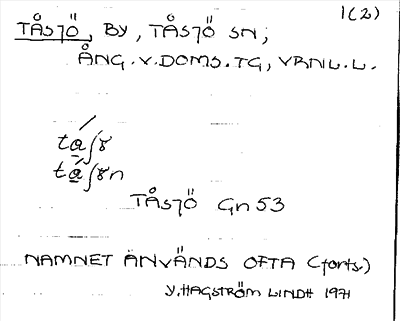 1(2)
TÅSJÖ, BY, TÅSJÖ SN;
ÅNG.V.DOMS.TG, VRNL.L.
TÅSJÖ Gn 53
NAMNET ANVÄNDS OFTA (forts.)
Y. HAGSTRÖM LINDH 1971